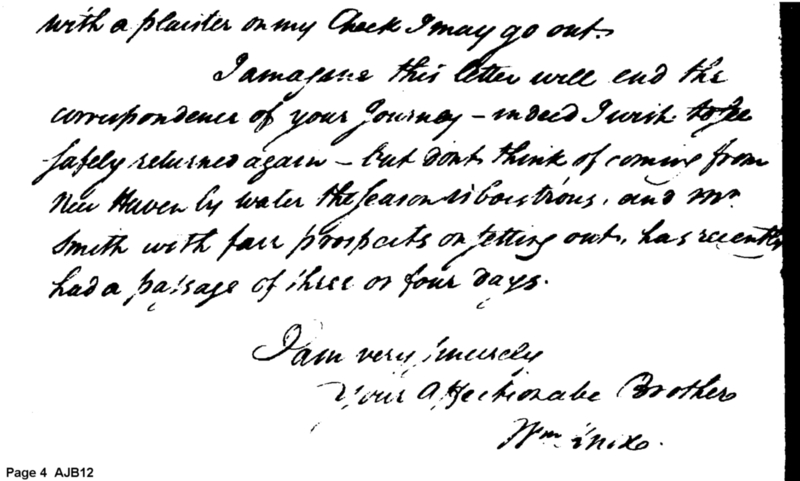 with a plaister on my Cheek I may go out.
I amagane this letter will end the
correspondence of your Journey – indeed I wish to see
safely returned again – but dont think of coming from
New Haven by water the season is boistrous, and Mr.
Smith with fair prospects on setting out, has recently
had a passage of three or four days.
I am very sincerely
Your Affectionate Brother
Wm
Page 4 AJB12